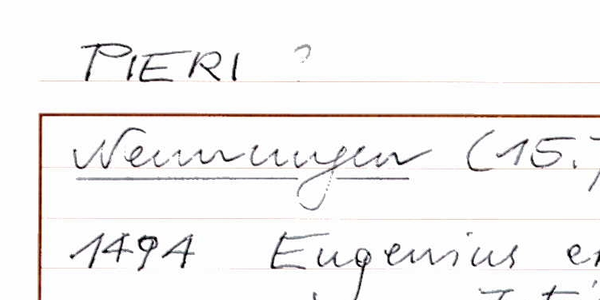 PIERI ?
Nennungen (15.
1494 Eugenius